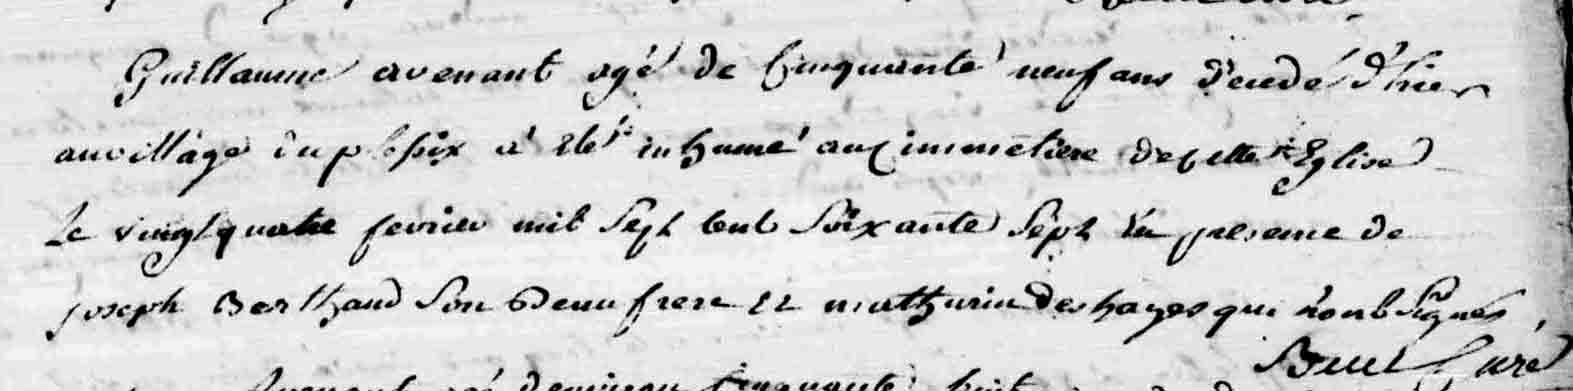 Guillaume avenant agé de Cinquante neuf ans décedé d'hier
au village du plesix a été inhumé au Cimmetiere de cette Eglise
Le vingt quatre fevrier mil Sept Cent Soixante Sept En presence de
joseph Berthaud Son Beau frere et mathurin Des hayes qui n'ont Signés
Curé
avenant agé d'environ Cinquante huit